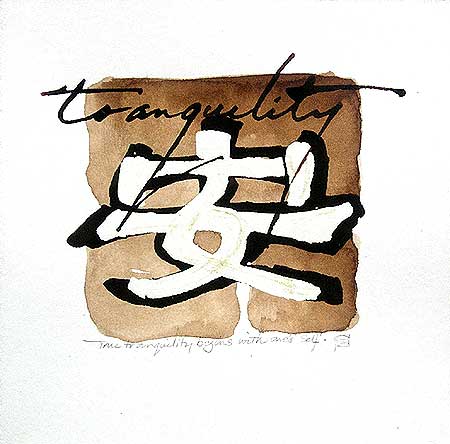 tranquility
安
True tranquility begins with one's self.